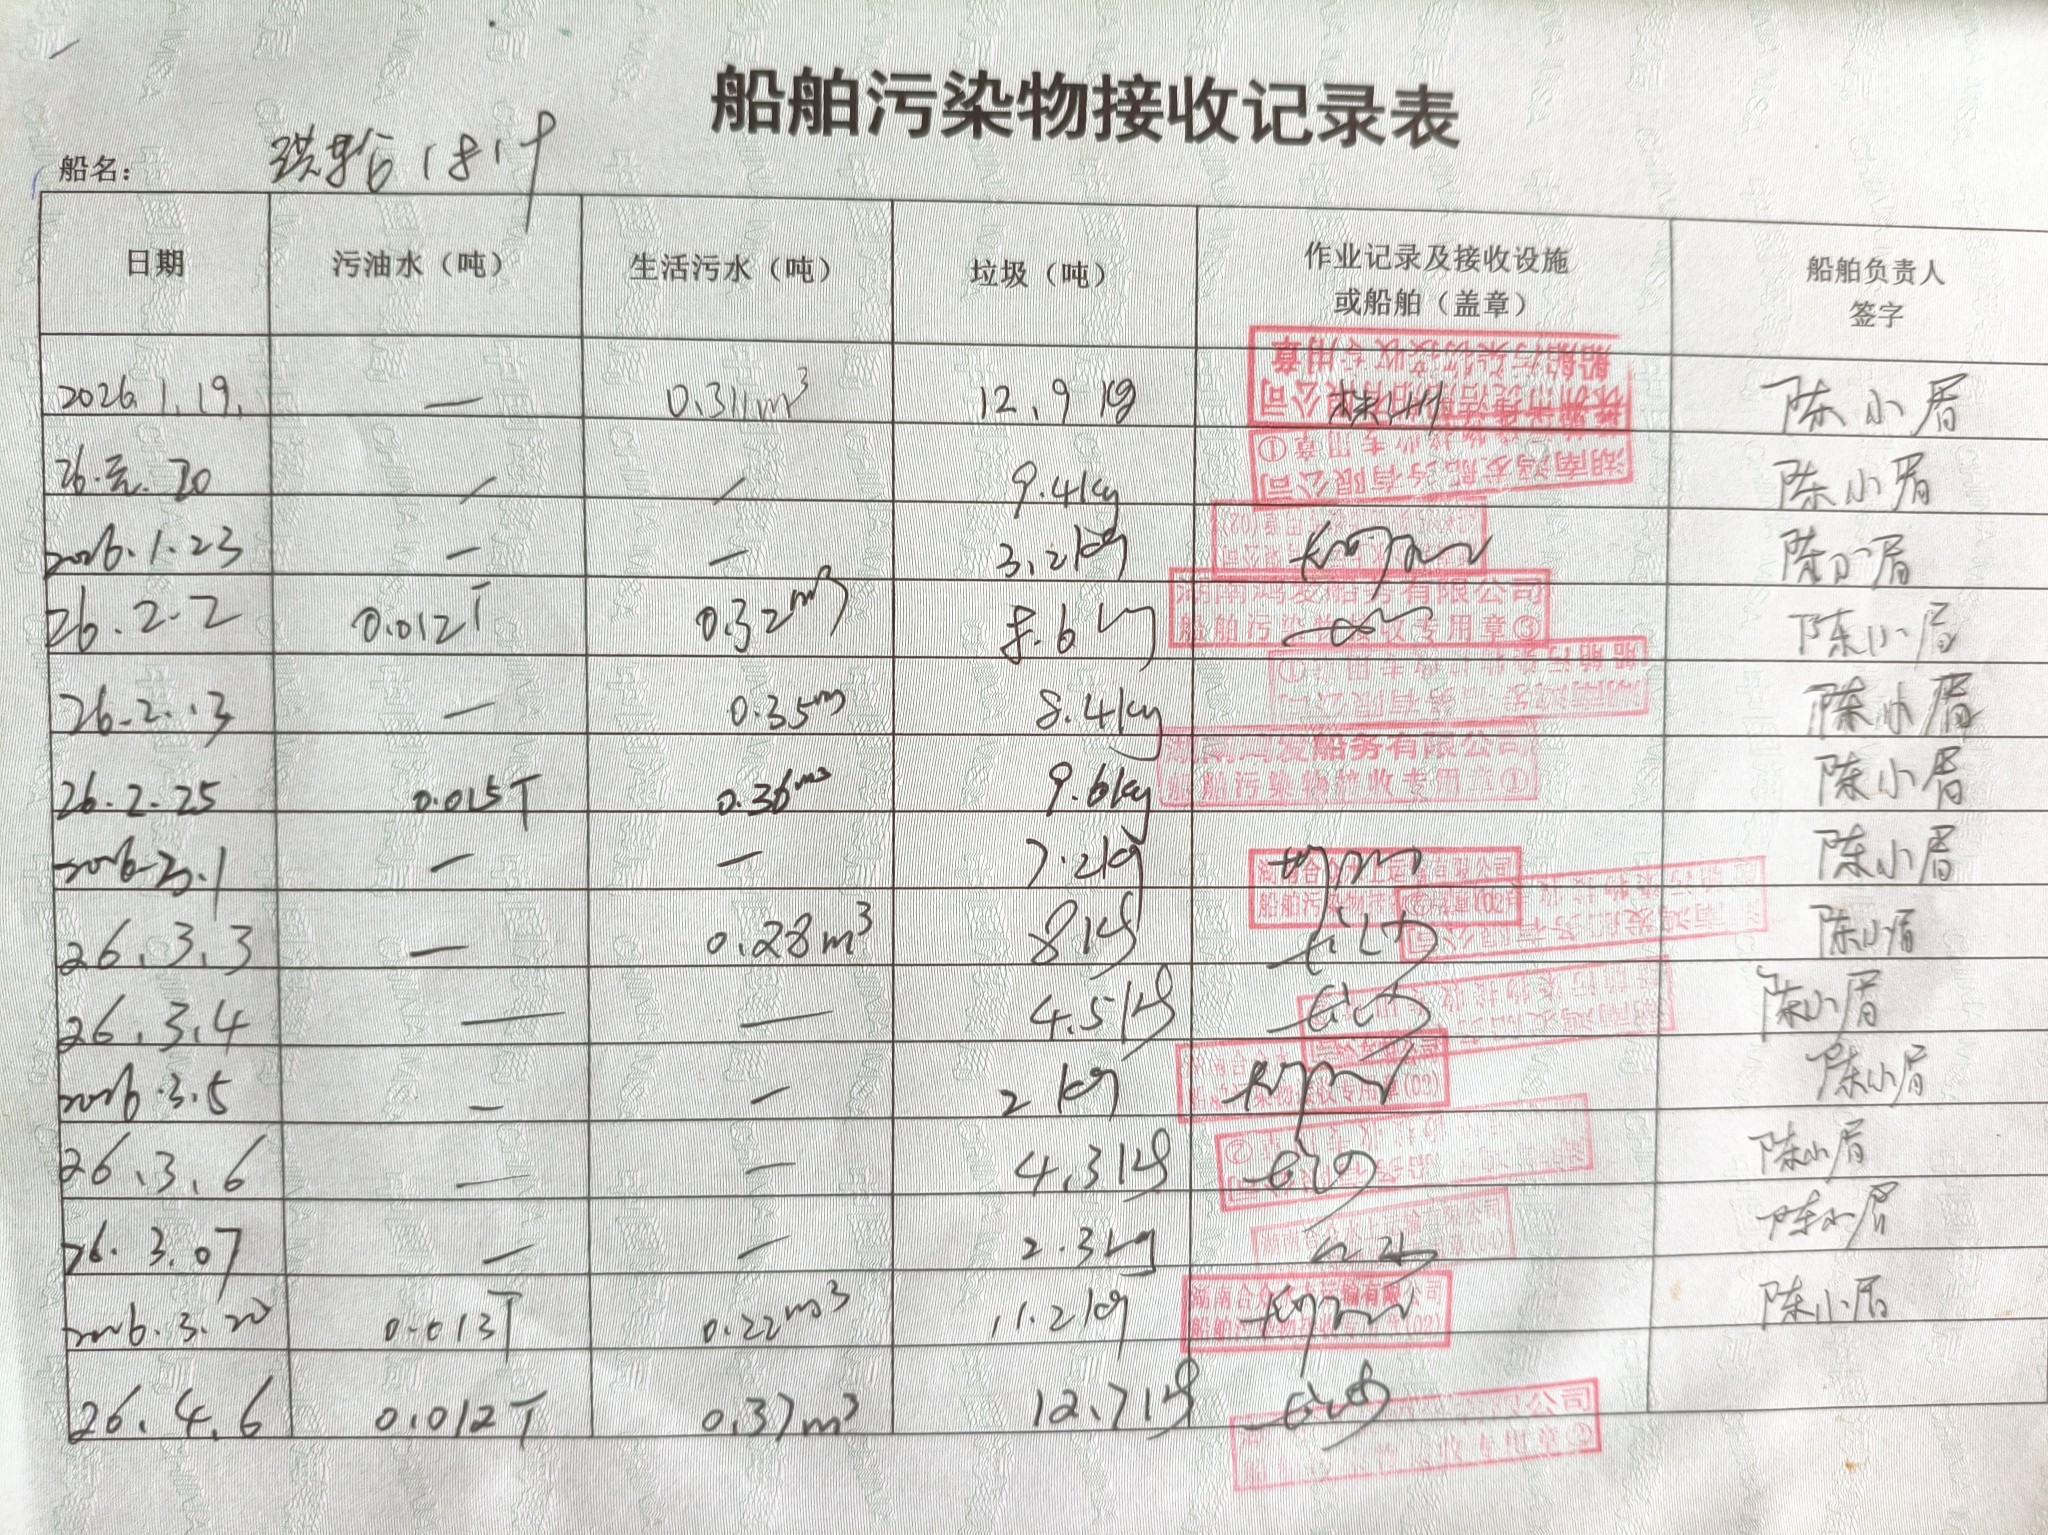 船舶污染物接收记录表
船名：
日期 污油水（吨） 生活污水（吨） 垃圾（吨） 作业记录及接收设施或船舶（盖章） 船舶负责人签字
2026.1.19. — 0.311m³ 12.9kg 株洲 陈小眉
26.元.20 — — 9.4kg 湖南鸿发船务有限公司 陈小眉
2026.1.23 — — 3.2kg 陈小眉
26.2.2 0.012T 0.32m³ 8.6kg 湖南鸿发船务有限公司 船舶污染物接收专用章③ 陈小眉
26.2.13 — 0.35m³ 8.4kg 陈小眉
26.2.25 0.015T 0.36m³ 9.6kg 发船务有限公司 船舶污染物接收专用章① 陈小眉
2026.3.1 — — 7.2kg 陈小眉
26.3.3 — 0.28m³ 8kg 陈小眉
26.3.4 — — 4.5kg 陈小眉
2026.3.5 — — 2kg 陈小眉
26.3.6 — — 4.3kg 陈小眉
26.3.07 — — 2.3kg 陈小眉
2026.3.20 0.013T 0.22m³ 11.2kg 陈小眉
26.4.6 0.012T 0.37m³ 12.7kg